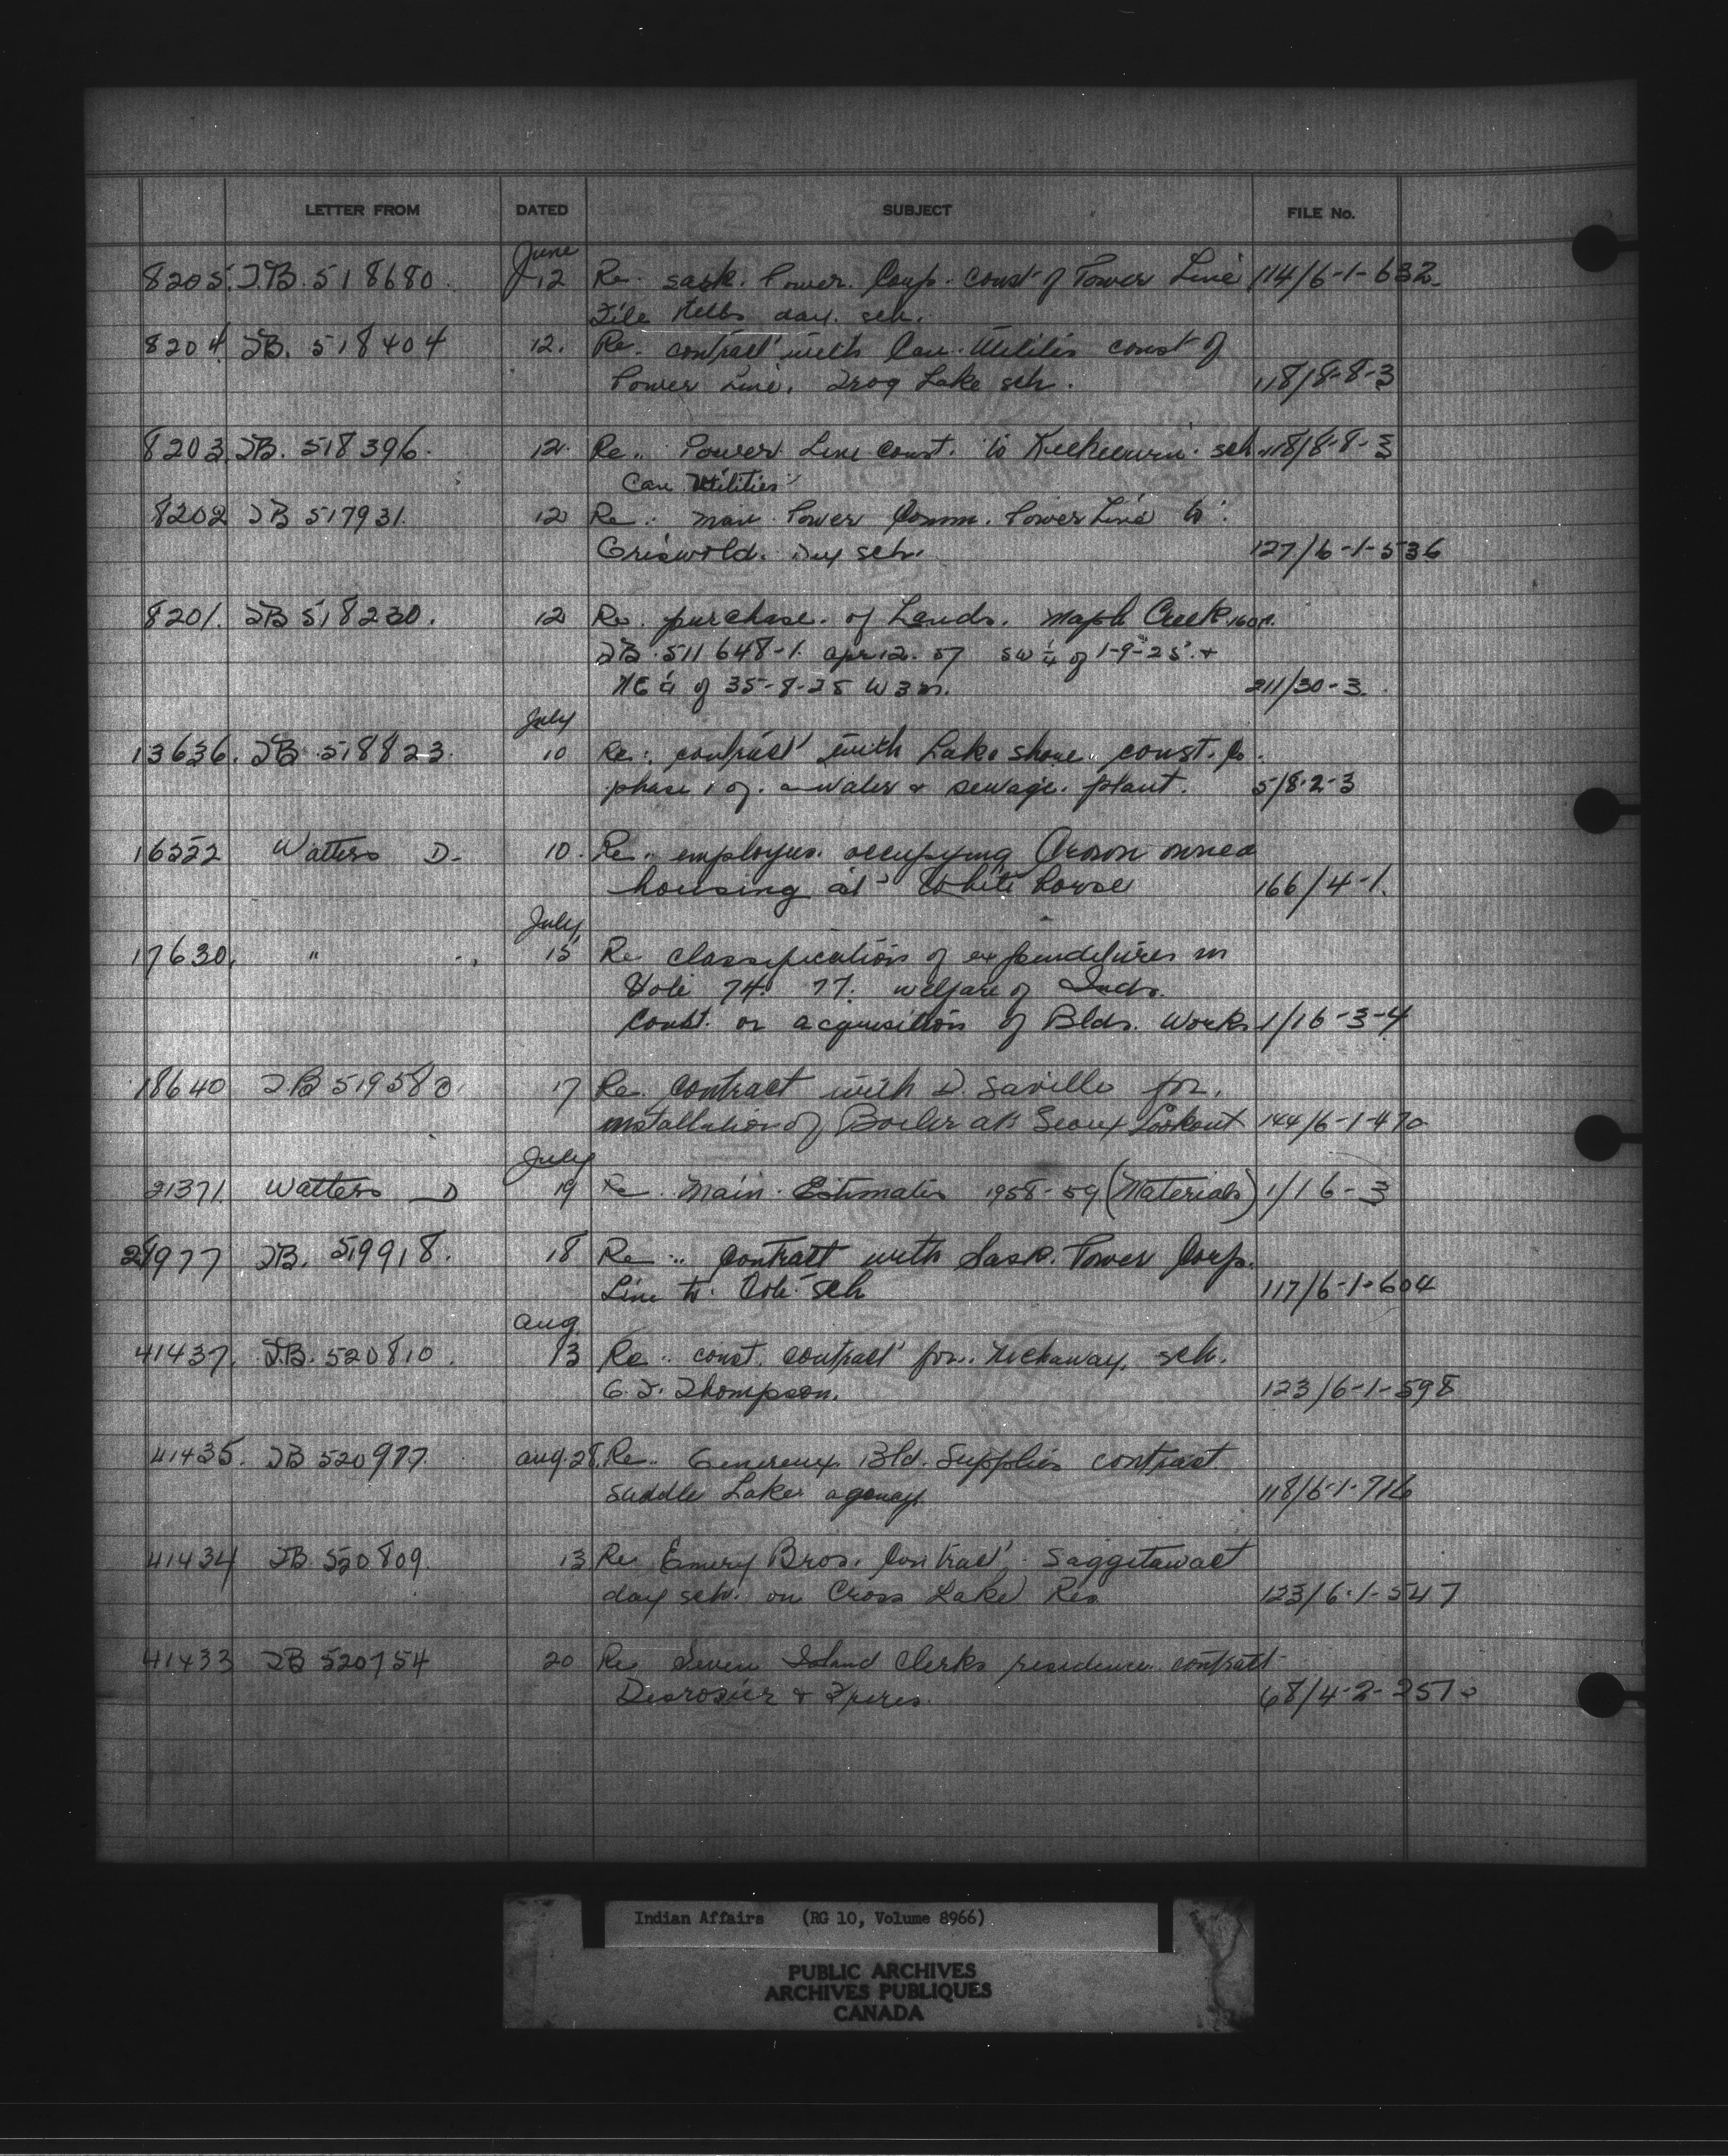 LETTER FROM DATED SUBJECT FILE No.
June
8205. T.B. 518680. 12 Re. Sask. Power. Corp. const of Power Line 114/6-1-632.
File Hills day. sch.
8204. T.B. 518404 12. Re. contract with Can. Utilities const of
Power Line. Frog Lake sch. 118/8-8-3
8203. T.B. 518396. 12. Re. Power Line const. to Keeheewin. sch. 118/8-8-3
Can Utilities
8202 T.B 517931. 12 Re. Man. Power Comm. Power Line to.
Griswold. Day sch. 127/6-1-536
8201. T.B 518230. 12 Re. purchase. of Lands. Maple Creek.
T.B. 511648-1. apr 12. 57 SW ¼ of 1-9-25. +
NE ¼ of 35-8-25 W3M. 211/30-3.
July
13636. T.B. 518823. 10 Re. contract with Lake shore. const. Co.
phase 1 of. a water & sewage. plant. 5/8-2-3
16222 Watters D. 10. Re. employees. occupying Crown owned
housing at White horse 166/4-1.
July
17630. " " 15 Re classification of expenditures in
Vote 74. 77. welfare of Inds.
Const. or acquisition of Blds. Works 1/16-3-4
18640 T.B 519580. 17 Re. contract with D. Saville for.
installation of Boiler at Sioux Lookout 144/6-1-470
July
21371. Watters D 19 Re. Main. Estimates 1958-59 (Materials) 1/16-3
977 T.B. 519918. 18 Re. contract with Sask. Power Corp.
Line to. Cote. Sch 117/6-1-604
aug.
41437. T.B. 520810. 13 Re. const. contract for. sch.
G. T. Thompson. 123/6-1-598
41435. T.B 520977. aug. 28. Re. Genereux Bld. Supplies contract
Saddle Lake agency 118/6-1-716
41434 T.B. 520809. 13 Re Emery Bros. Contract. Saggitawact
day sch. on Cross Lake Res 123/6-1-547
41433 T.B 520754 20 Re Seven Island Clerks residence contract
Desrosier & Freres. 68/4-2-
Indian Affairs (RG 10, Volume 8966)
PUBLIC ARCHIVES
ARCHIVES PUBLIQUES
CANADA